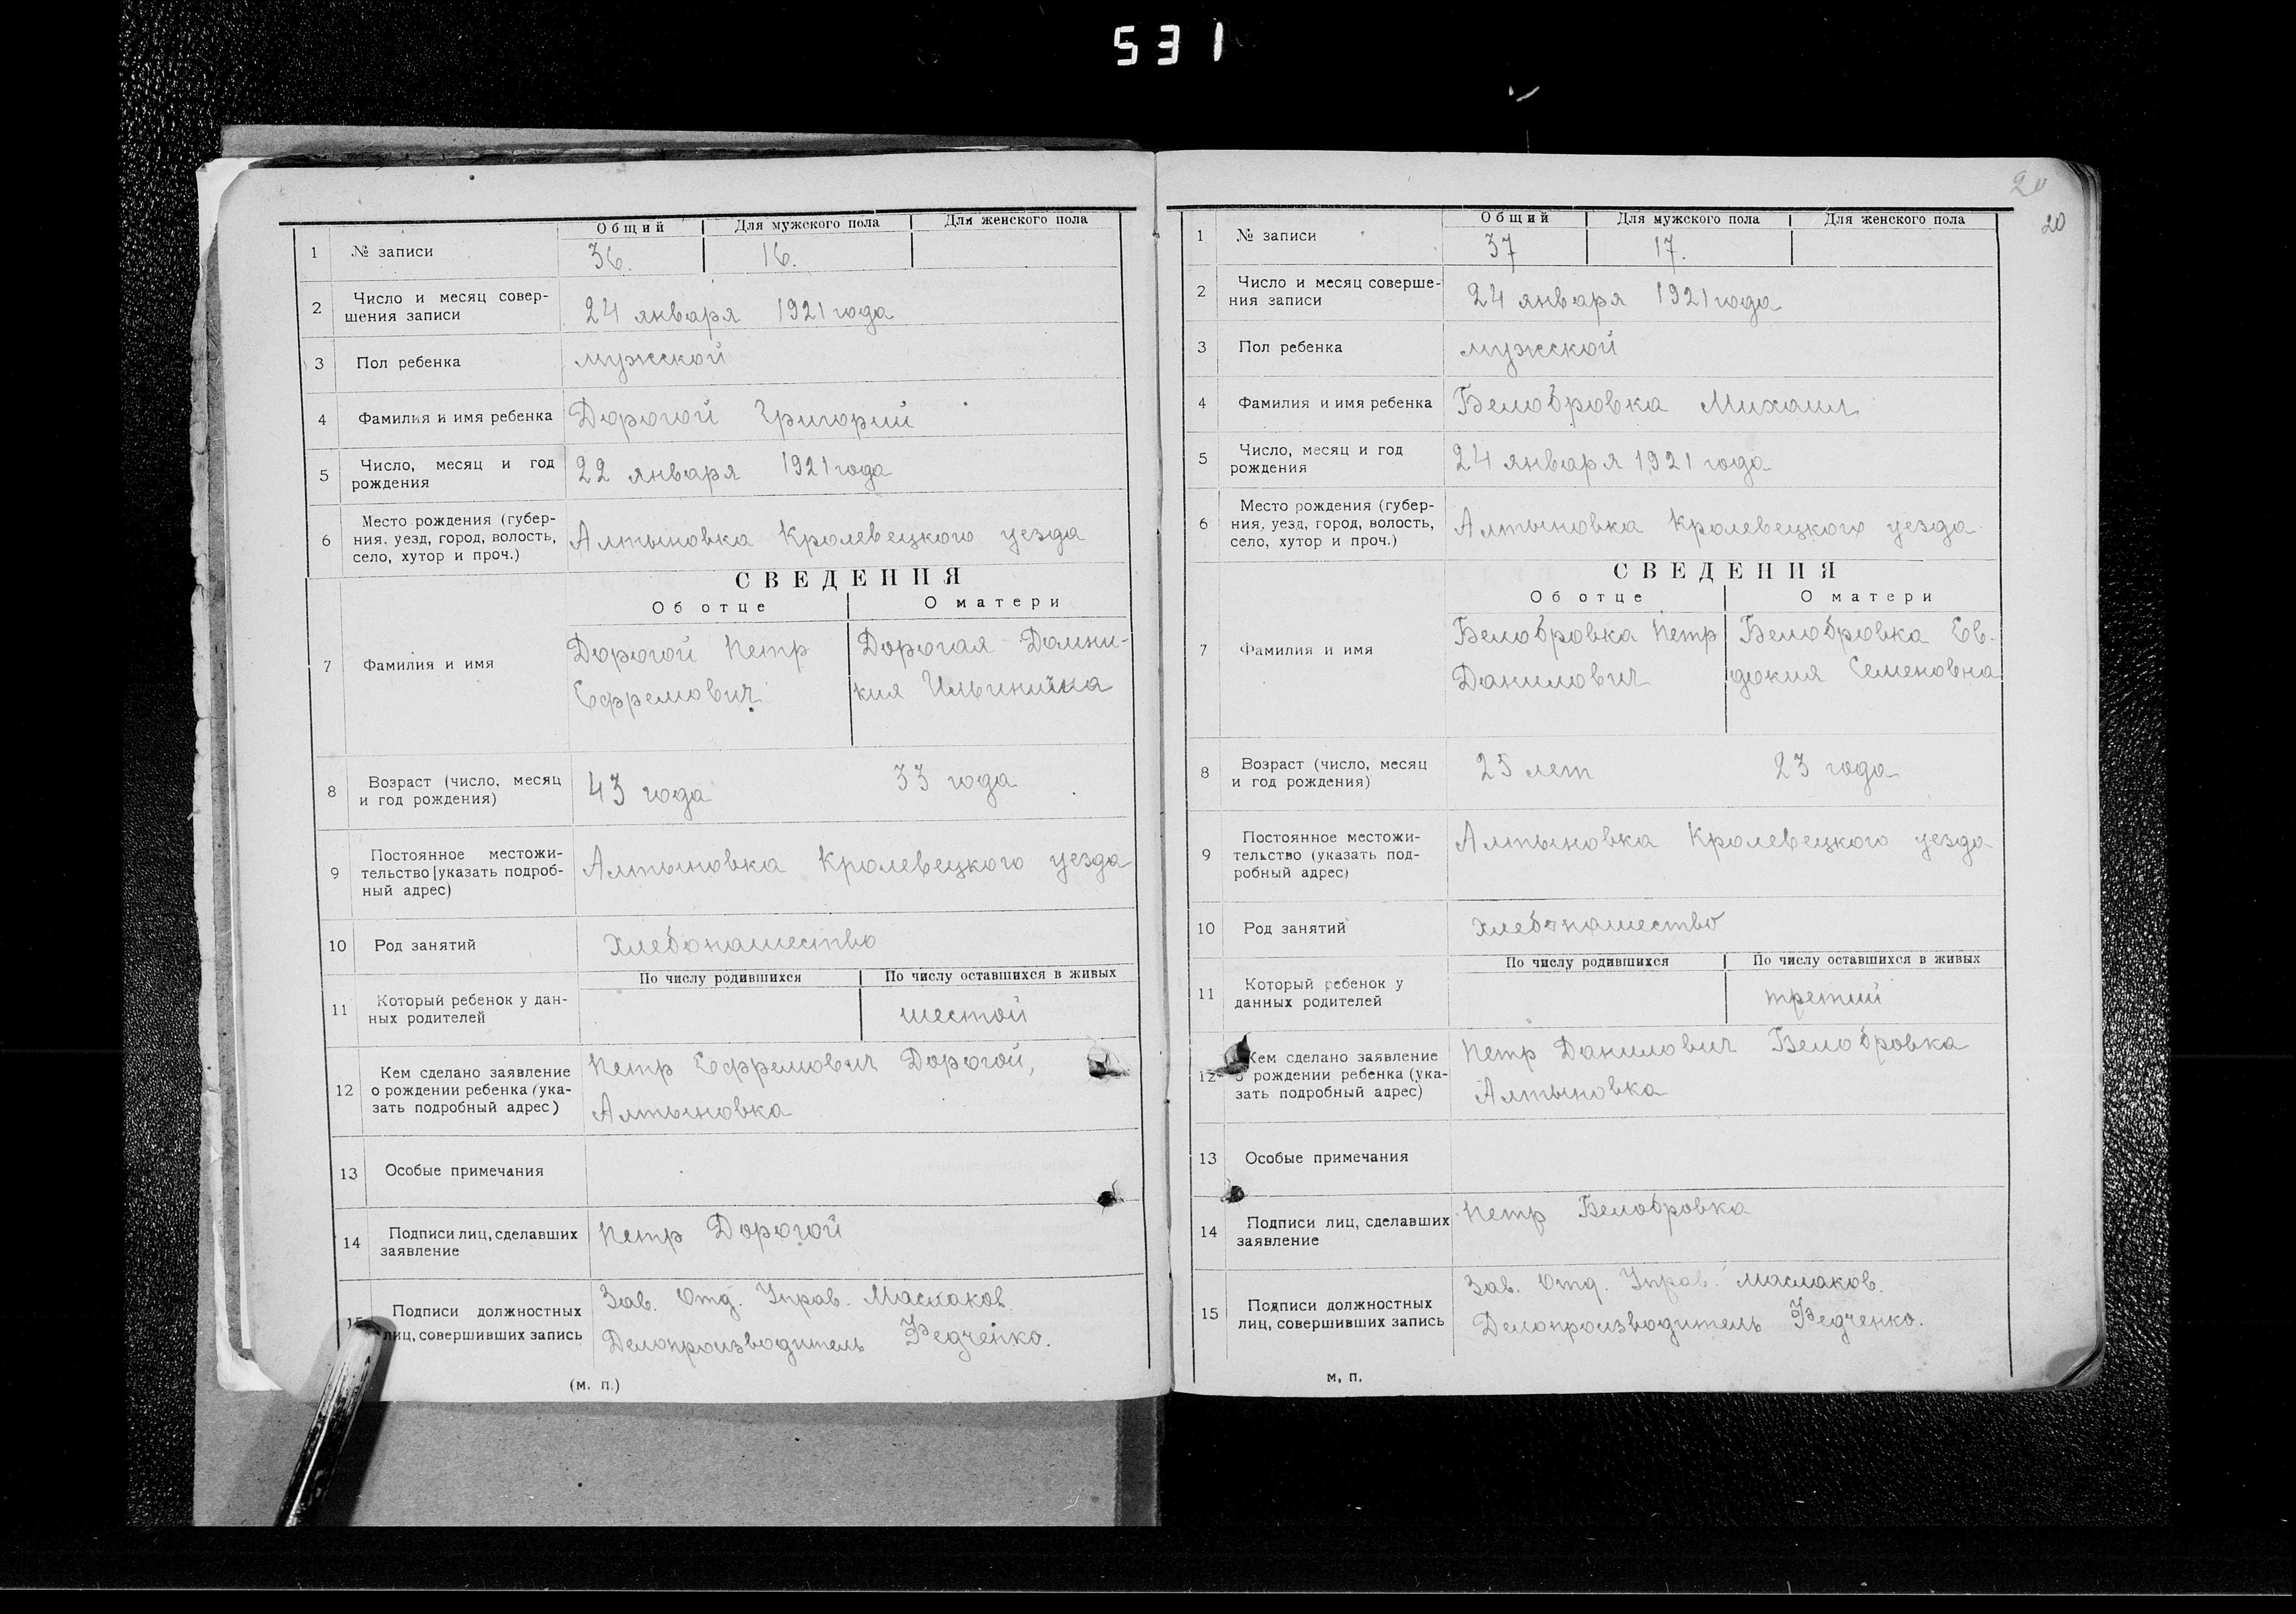 531
20
20
Общий Для мужского пола Для женского пола
1 № записи 36. 16.
2 Число и месяц совер-
шения записи 24 января 1921 года
3 Пол ребенка мужской
4 Фамилия и имя ребенка Дорогой Григорий
5 Число, месяц и год
рождения 22 января 1921 года
6 Место рождения (губер-
ния, уезд, город, волость,
село, хутор и проч.) Алтыновка Кролевецкого уезда
СВЕДЕНИЯ
Об отце О матери
7 Фамилия и имя
Дорогой Петр Дорогая Домни-
Ефремович кия Ильинична
8 Возраст (число, месяц
и год рождения) 43 года 33 года
9 Постоянное местожи-
тельство [указать подроб-
ный адрес) Алтыновка Кролевецкого уезда
10 Род занятий хлебопашество
По числу родившихся По числу оставшихся в живых
11 Который ребенок у дан-
ных родителей шестой
12 Кем сделано заявление
о рождении ребенка (ука-
зать подробный адрес)
Петр Ефремович Дорогой,
Алтыновка
13 Особые примечания
14 Подписи лиц, сделавших
заявление Петр Дорогой
15 Подписи должностных
лиц, совершивших запись
Зав. Отд. Управ. Маслаков.
Делопроизводитель Федченко.
(м. п.)
Общий Для мужского пола Для женского пола
1 № записи 37 17.
2 Число и месяц соверше-
ния записи 24 января 1921 года
3 Пол ребенка мужской
4 Фамилия и имя ребенка Белобровка Михаил
5 Число, месяц и год
рождения 24 января 1921 года
6 Место рождения (губер-
ния, уезд, город, волость,
село, хутор и проч.) Алтыновка Кролевецкого уезда
СВЕДЕНИЯ
Об отце О матери
7 Фамилия и имя
Белобровка Петр Белобровка Ев-
Данилович докия Семеновна
8 Возраст (число, месяц
и год рождения) 25 лет 23 года
9 Постоянное местожи-
тельство (указать под-
робный адрес) Алтыновка Кролевецкого уезда
10 Род занятий хлебопашество
По числу родившихся По числу оставшихся в живых
11 Который ребенок у
данных родителей третий
12 Кем сделано заявление
о рождении ребенка (ука-
зать подробный адрес)
Петр Данилович Белобровка
Алтыновка
13 Особые примечания
14 Подписи лиц, сделавших
заявление Петр Белобровка
15 Подписи должностных
лиц, совершивших запись
Зав. Отд. Управ. Маслаков.
Делопроизводитель Федченко.
м. п.